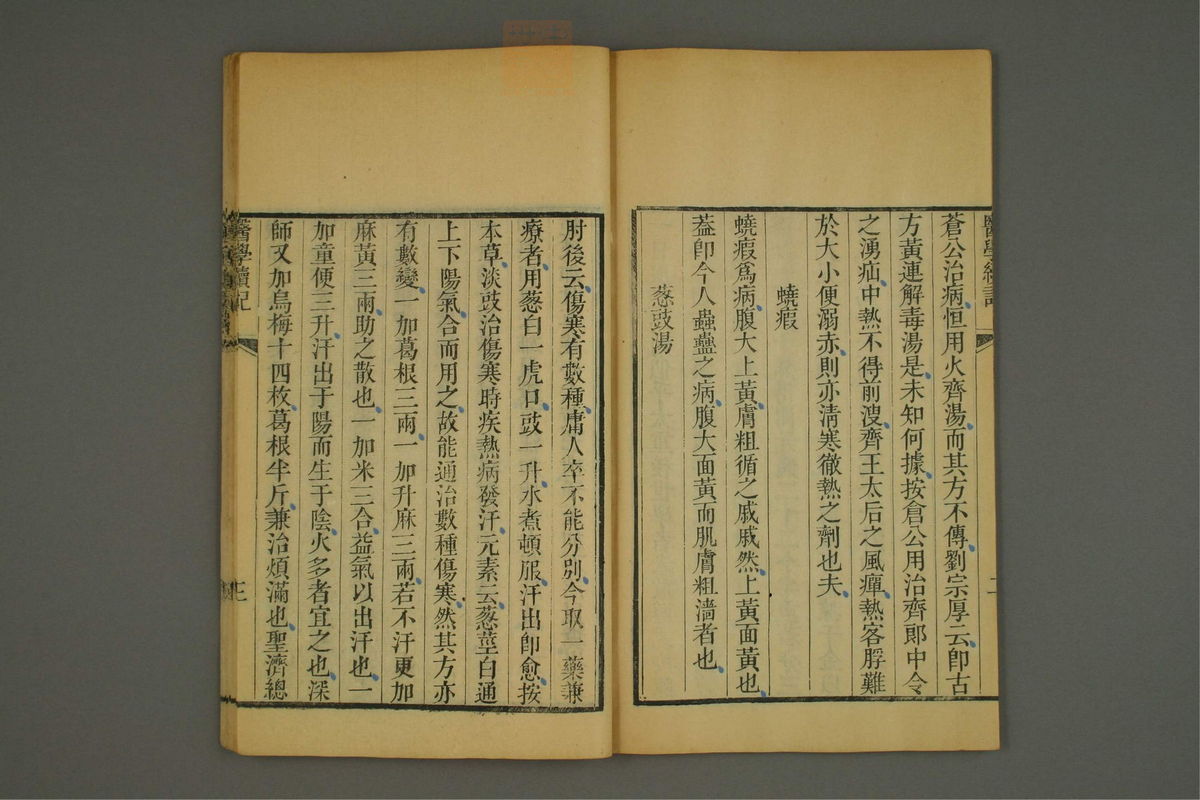 蒼公治病恒用火齊湯而其方不傳劉宗厚云卽古
方黃連解毒湯是未知何據按倉公用治齊郞中令
之湧疝中熱不得前溲齊王太后之風癉熱客脬難
於大小便溺赤則亦淸寒徹熱之劑也夫
蟯瘕
蟯瘕爲病腹大上黃膚粗循之戚戚然上黃面黃也
葢卽今人蟲蠱之病腹大面黃而肌膚粗濇者也
葱豉湯
肘後云傷寒有數種庸人卒不能分別今取一藥兼
療者用葱白一虎口豉一升水煮頓服汗出卽愈按
本草淡豉治傷寒時疾熱病發汗元素云葱莖白通
上下陽氣合而用之故能通治數種傷寒然其方亦
有數變一加葛根三兩一加升麻三兩若不汗更加
麻黃三兩助之散也一加米三合益氣以出汗也一
加童便三升汗出于陽而生于陰火多者宜之也深
師又加烏梅十四枚葛根半斤兼治煩滿也聖濟總
醫學讀記